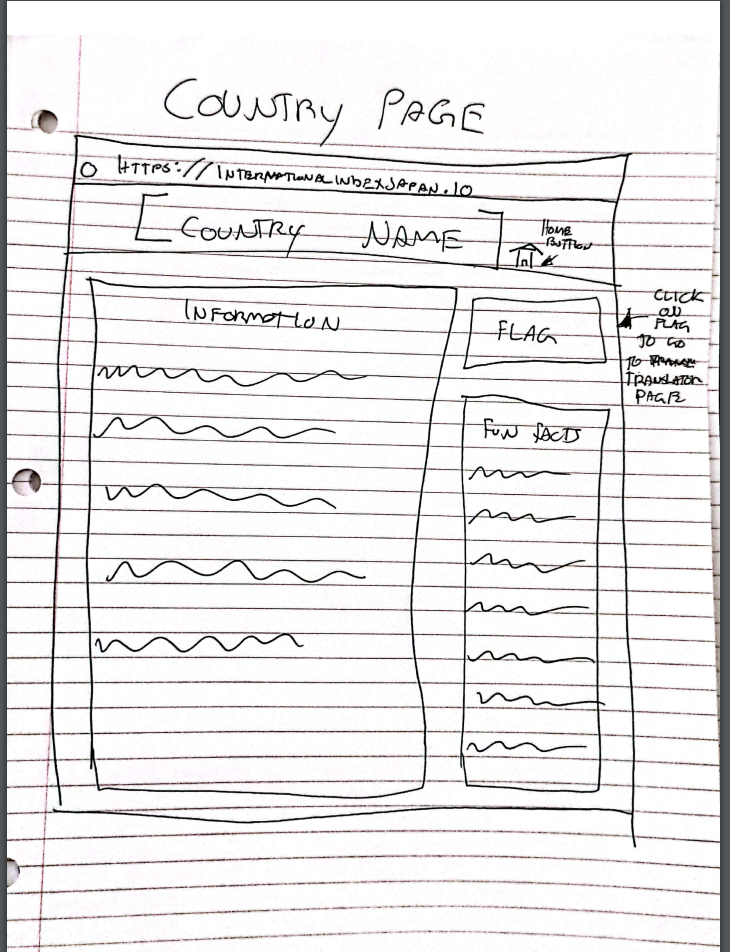 COUNTRY PAGE
HTTPS://INTERNATIONALINDEXJAPAN.IO
COUNTRY NAME
HOME
BUTTON
INFORMATION
FLAG
CLICK
ON
FLAG
TO GO
TO
TRANSLATOR
PAGE
FUN FACTS